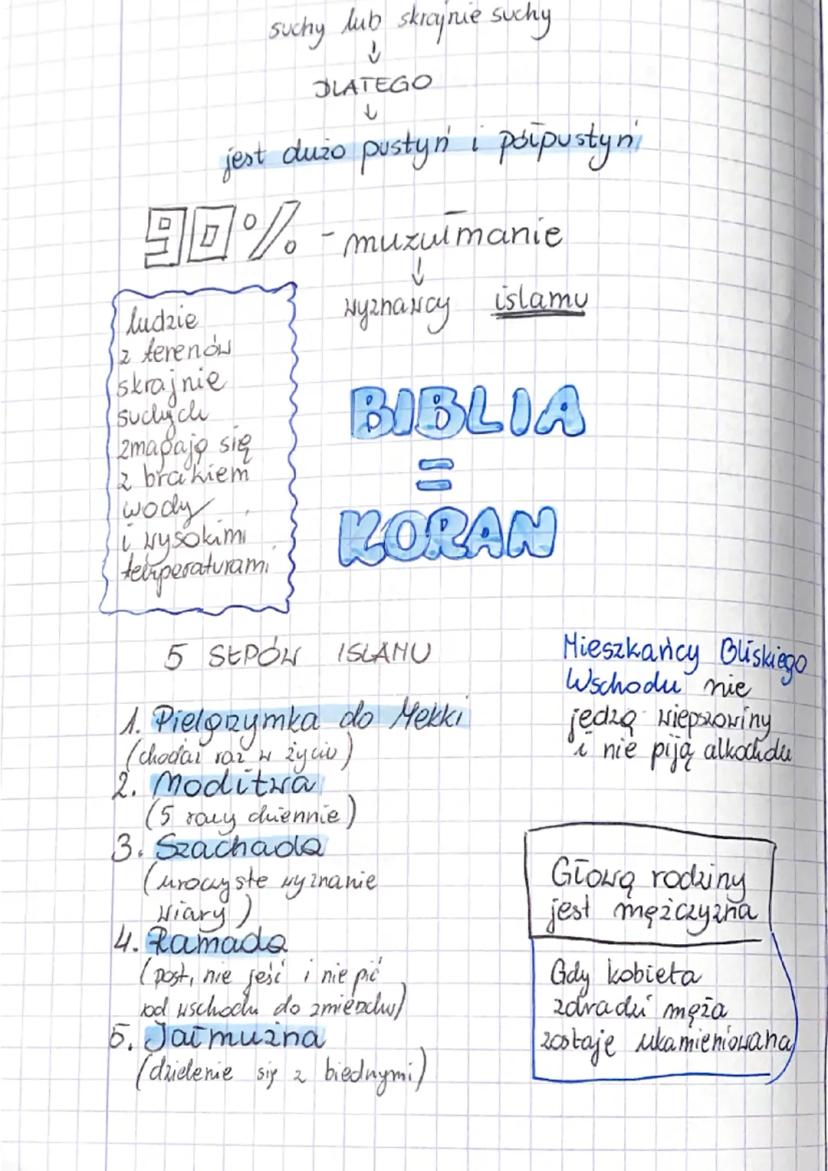 suchy lub skrajnie suchy
↓
DLATEGO
↓
jest dużo pustyń i półpustyń
90% - muzułmanie
↓
wyznawcy islamu
ludzie
z terenów
skrajnie
suchych
zmagają się
z brakiem
wody
i wysokimi
temperaturami
BIBLIA
=
KORAN
5 SŁPÓW ISLAMU
1. Pielgrzymka do Mekki
(chodai raz w życiu)
2. Moditwa
(5 razy dziennie)
3. Szachada
(uroczyste wyznanie
wiary)
4. Ramada
(post, nie jeść i nie pić
od wschodu do zmierzchu)
5. Jałmużna
(dzielenie się z biednymi)
Mieszkańcy Bliskiego
Wschodu nie
jedzą wieprzowiny
i nie piją alkoholu
Głową rodziny
jest mężczyzna
Gdy kobieta
zdradzi męża
zostaje ukamieniowana